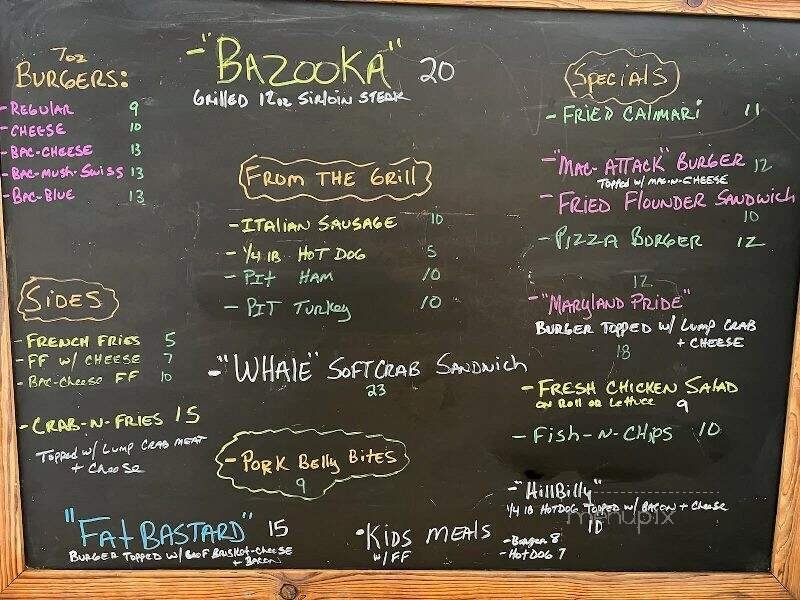 7oz
BURGERS:
- REGULAR 9
- CHEESE 10
- BAC-CHEESE 13
- BAC-MUSH-SWISS 13
- BAC-BLUE 13
SIDES
- FRENCH FRIES 5
- FF W/ CHEESE 7
- BAC-CHEESE FF 10
- CRAB-N-FRIES 15
TOPPED W/ LUMP CRAB MEAT
+ CHEESE
"FAT BASTARD" 15
BURGER TOPPED W/ BEEF BRISKET-CHEESE
+ BACON
- "BAZOOKA" 20
GRILLED 12oz SIRLOIN STEAK
FROM THE GRILL
- ITALIAN SAUSAGE 10
- 1/4 lB HOT DOG 5
- PIT HAM 10
- PIT TURKEY 10
- "WHALE" SOFTCRAB SANDWICH
23
- PORK BELLY BITES
9
• KIDS MEALS
W/ FF
- BURGER 8
- HOT DOG 7
SPECIALS
- FRIED CALIMARI 11
- "MAC-ATTACK" BURGER 12
TOPPED W/ MAC-N-CHEESE
- FRIED FLOUNDER SANDWICH
10
- PIZZA BURGER 12
12
- "MARYLAND PRIDE"
BURGER TOPPED W/ LUMP CRAB
+ CHEESE
18
- FRESH CHICKEN SALAD
ON ROLL OR LETTUCE 9
- FISH-N-CHIPS 10
- "HILLBILLY"
1/4 lB HOTDOG TOPPED W/ BACON + CHEESE
10
menupix